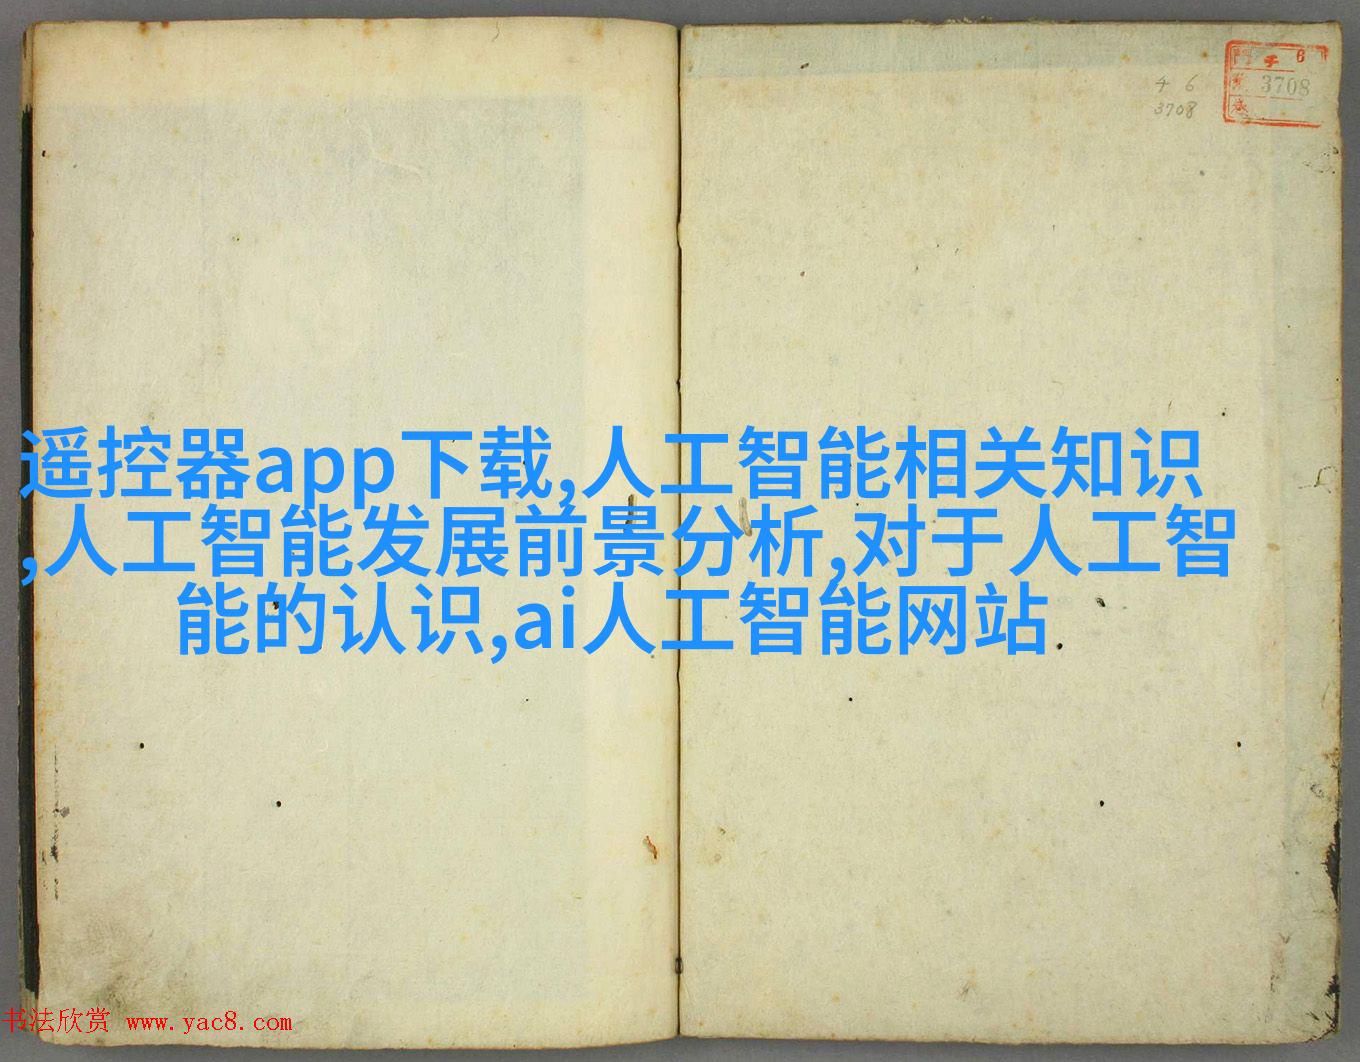 チ 6
3708
チ 6
3708
遥控器app下载,人工智能相关知识
,人工智能发展前景分析,对于人工智
能的认识,ai人工智能网站
书法欣赏 www.yac8.com